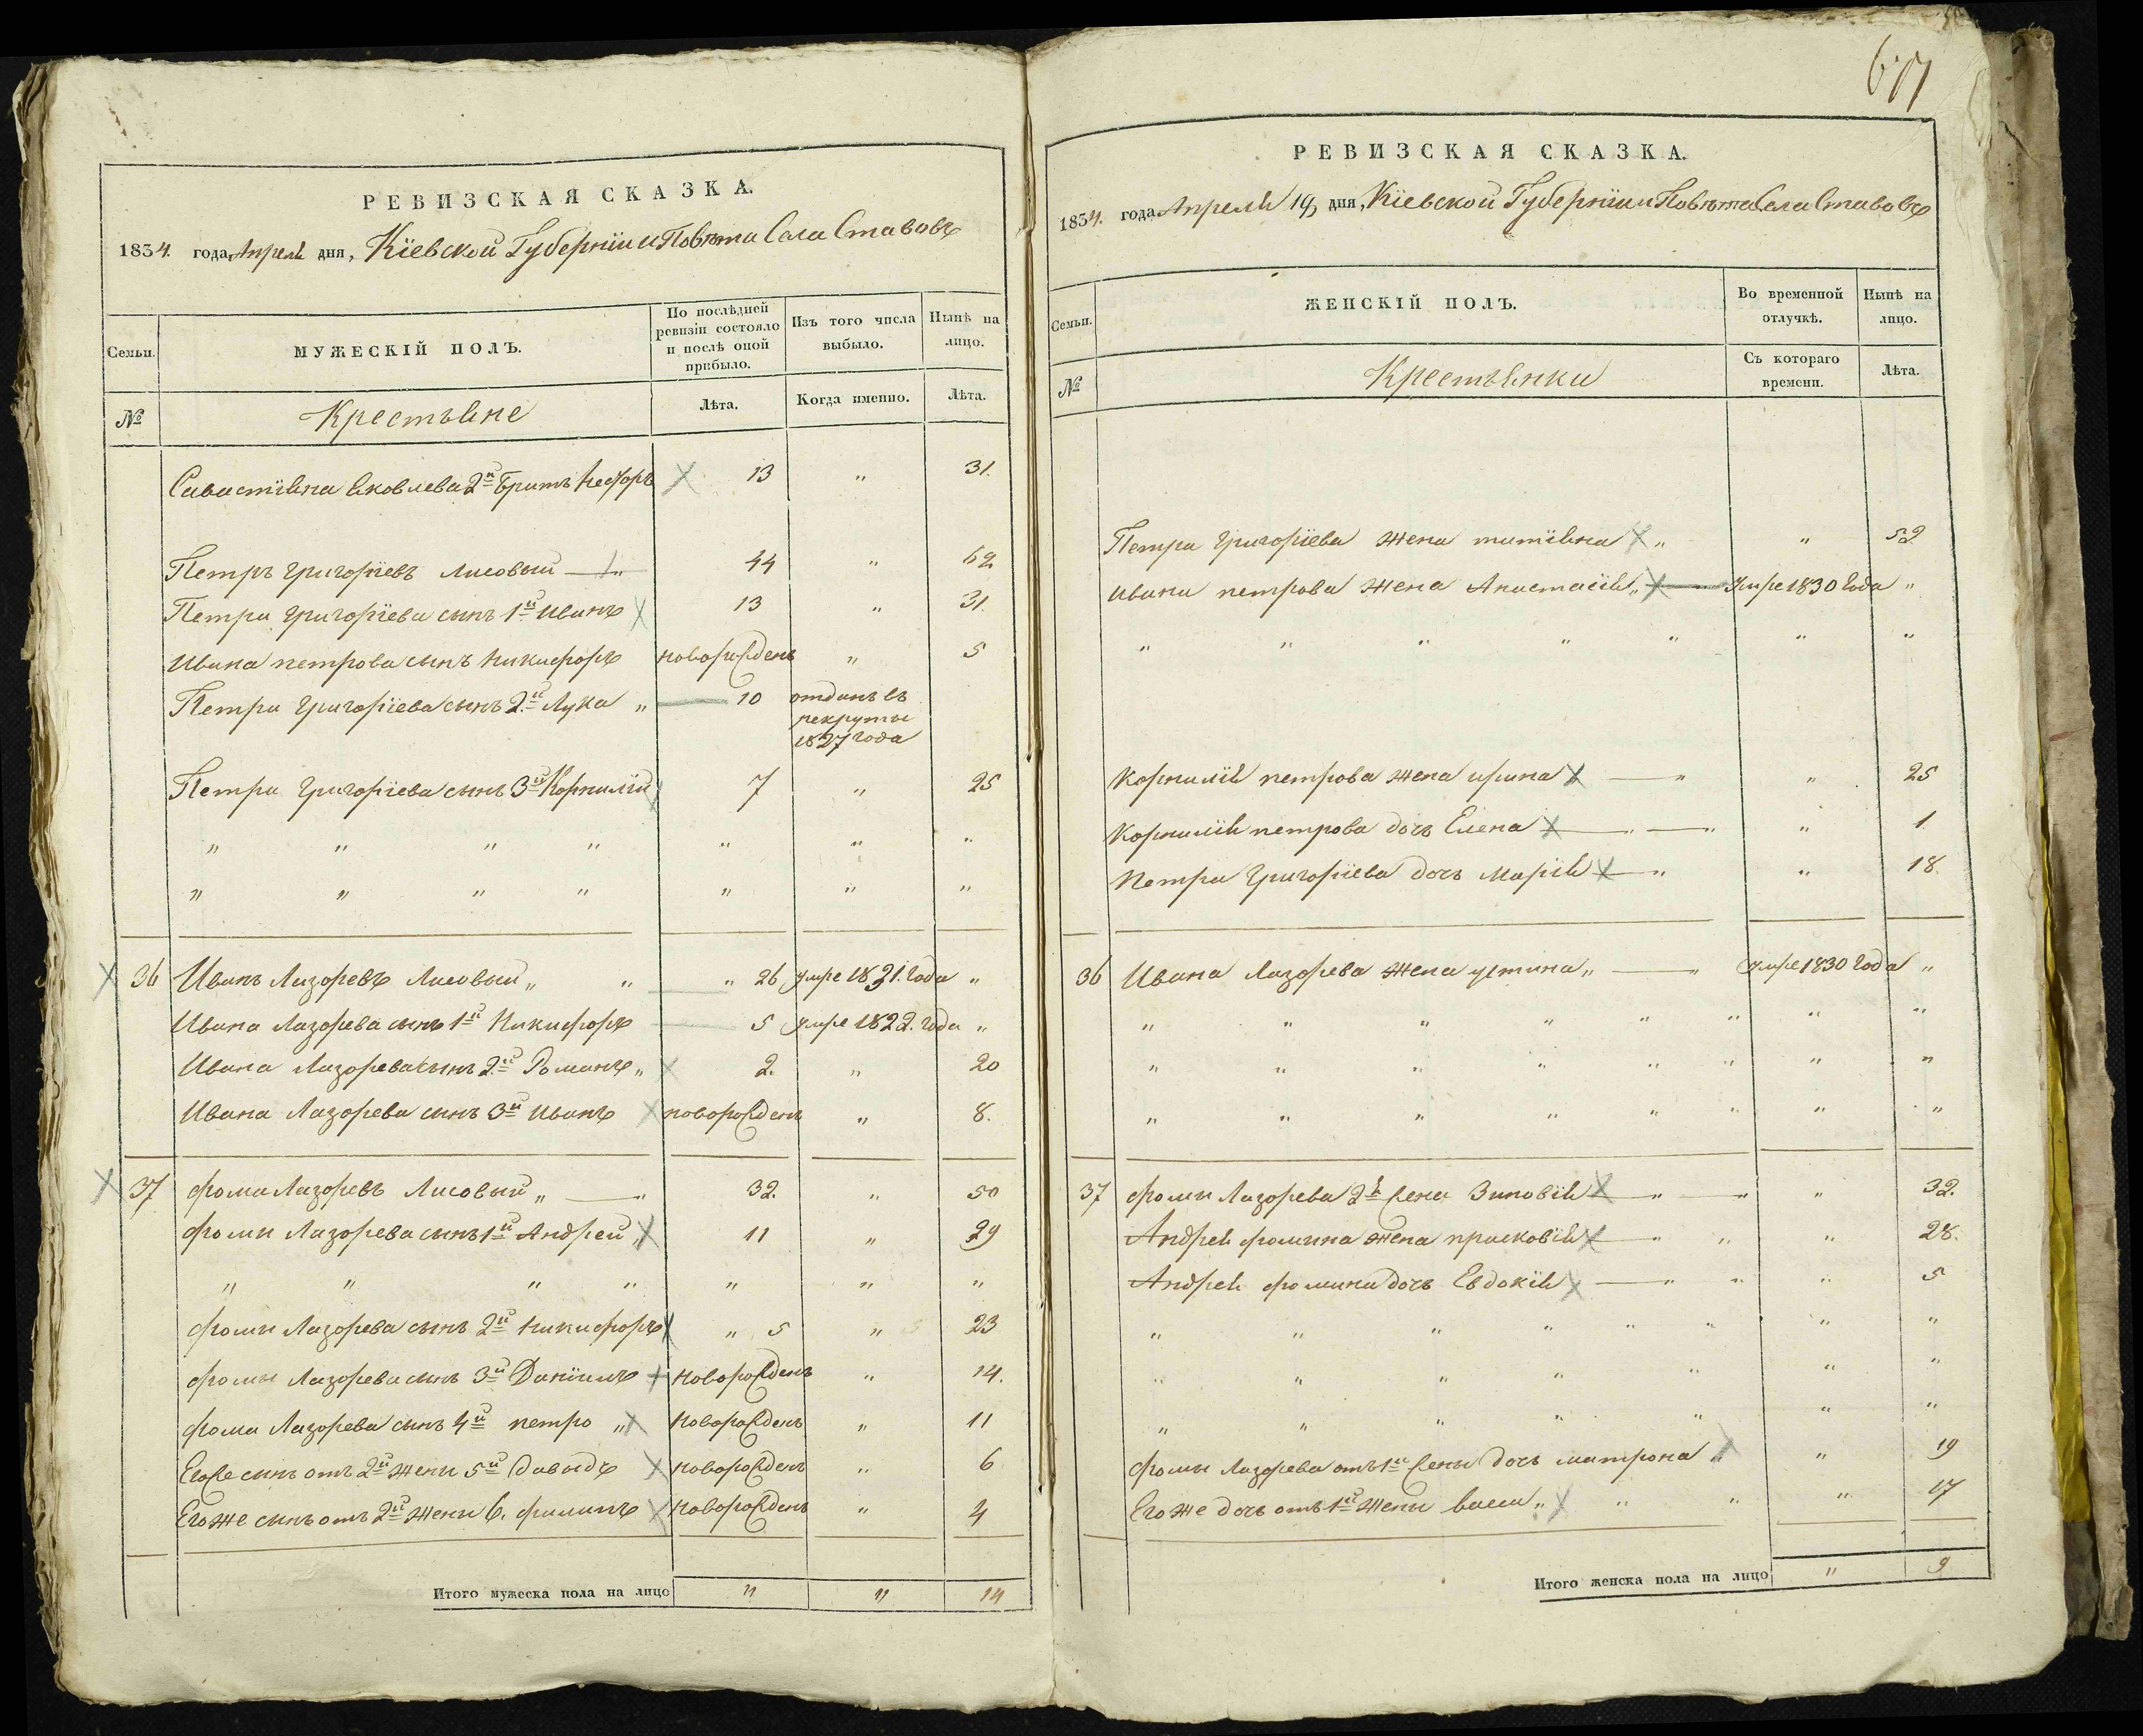 677
РЕВИЗСКАЯ СКАЗКА.
1834. года Апреля дня, Кіевской Губерніи и Повѣта Села Ставовъ
Семьи.
МУЖЕСКІЙ ПОЛЪ.
По послѣдней ревизіи состояло и послѣ оной прибыло.
Изъ того числа выбыло.
Нынѣ на лицо.
№
Крестьяне
Лѣта.
Когда именно.
Лѣта.
Савастіяна Яковлева 2й Братъ 13 " 31.
Петръ Григоріевъ Лисовый 44 " 62
Петра Григоріева сынъ 1й Иванъ 13 " 31.
Ивана петрова сынъ Никифоръ новорожденъ " 5
Петра Григоріева сынъ 2й Лука " 10 отданъ въ
рекруты
1827 года
Петра Григоріева сынъ 3й Корнилій 7 " 25
" " " " " " "
" " " " " " "
36 Иванъ Лазоревъ Лисовый " " " 26 умре 1831. года "
Ивана Лазорева сынъ 1й Никифоръ 5 умре 1822. года "
Ивана Лазорева сынъ 2й Романъ " 2. " 20
Ивана Лазорева сынъ 3й Иванъ новорожденъ " 8.
37 фома Лазоревъ Лисовый " " 32. " 50
фомы Лазорева сынъ 1й Андрей " 11 " 29
" " " " " " "
фомы Лазорева сынъ 2й Никифоръ " 5 " 23
фомы Лазорева сынъ 3й Даніилъ новорожденъ " 14.
фома Лазорева сынъ 4й петро " новорожденъ " 11
Егоже сынъ отъ 2й жены 5й Давыдъ новорожденъ " 6
Егоже сынъ отъ 2й жены 6. филипъ новорожденъ " 4
Итого мужеска пола на лицо " " 14
РЕВИЗСКАЯ СКАЗКА.
1834. года Апреля 19 дня, Кіевской Губерніи и Повѣта Села Ставовъ
Семьи.
ЖЕНСКІЙ ПОЛЪ.
Во временной отлучкѣ.
Нынѣ на лицо.
№
Крестьянки
Съ котораго времени.
Лѣта.
Петра Григоріева жена татіяна " " 52
Ивана петрова жена Анастасія " умре 1830 года "
" " " " " " "
Корнилія петрова жена ирина " " 25
Корнилія петрова дочь Елена " " " 1.
Петра Григоріева дочь Марія " " 18.
36 Ивана Лазорева жена устина " " умре 1830 года "
" " " " " " " "
" " " " " " " "
" " " " " " " "
37 фомы Лазорева 2я жена Зиновія " " " 32.
Андрея фомина жена прасковія " " " 28.
Андрея фомина дочь Евдокія " " " 5
" " " " " " " "
" " " " " " "
" " " " " " "
фомы Лазорева отъ 1й жены дочь матрона " " 19
Егоже дочь отъ 1й жены васса " " " " 17
Итого женска пола на лицо " 9